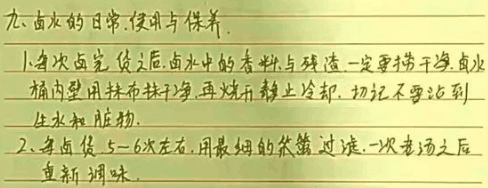 九、卤水的日常.使用与保养.
1.每次卤完货之后.卤水中的香料与残渣.一定要捞干净.卤水
桶内壁用抹布抹干净.再烧开静止冷却.切记不要沾到
生水和脏物.
2、每卤货5~6次左右.用最细的筛过滤.一次老汤之后
重新调味.